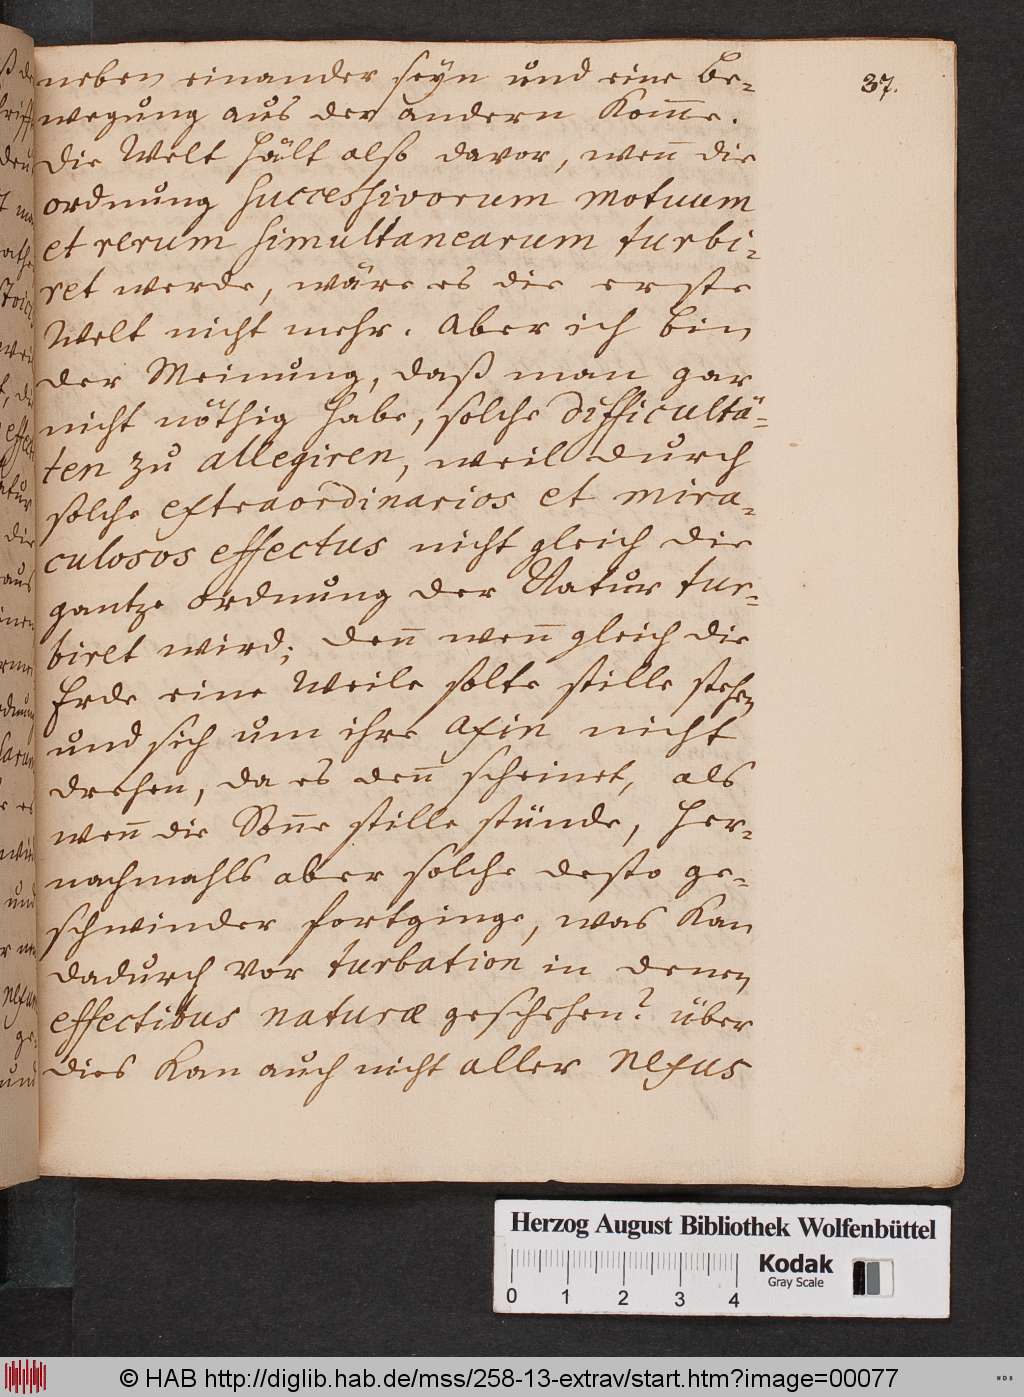 37.
neben einander seyn und eine Be-
wegung aus der andern kom̅e.
Die Welt hält also davor, wen̅ die
ordnung successivorum motuum
et rerum simultanearum turbi-
ret werde, wäre es die erste
Welt nicht mehr. Aber ich bin
der Meinung, daß man gar
nicht nöthig habe, solche difficultä-
ten zu allegiren, weil durch
solche extraordinarios et mira-
culosos effectus nicht gleich die
gantze ordnung der Natur tur-
biret wird; den̅ wen̅ gleich die
Erde eine Weile solte stille stehen
und sich um ihre axin nicht
drehen, da es den̅ scheinet, als
wen̅ die Son̅e stille stünde, her-
nachmahls aber solche desto ge-
schwinder fortginge, was kan
dadurch vor turbation in denen
effectibus naturæ geschehen? über
dies kan auch nicht aller nexus
Herzog August Bibliothek Wolfenbüttel
Kodak
Gray Scale
0 1 2 3 4
© HAB http://diglib.hab.de/mss/258-13-extrav/start.htm?image=00077